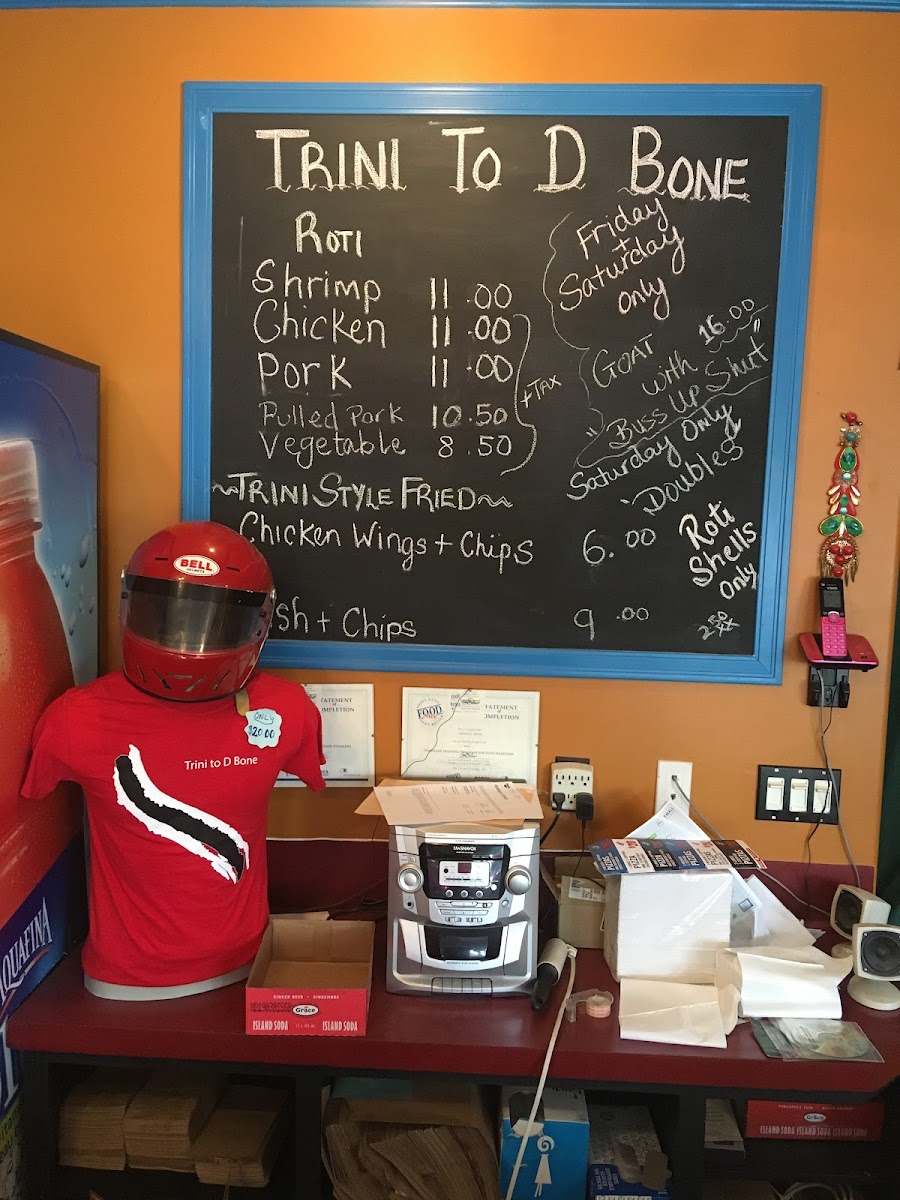 TRINI TO D BONE
ROTI
Shrimp 11.00
Chicken 11.00
Pork 11.00
Pulled Pork 10.50
Vegetable 8.50
+TAX
~TRINI STYLE FRIED~
Chicken Wings + Chips 6.00
ish + Chips 9.00
Friday
+
Saturday
only
GOAT 16.00
with
"Buss Up Shut"
Saturday Only
"Doubles
Roti
Shells
Only
2.50
BELL
HELMETS
ONLY
$20.00
Trini to D Bone
STATEMENT
OMPLETION
FOOD
TATEMENT
OMPLETION
MAGNAVOX
GINGER BEER
Grace
ISLAND SODA
ISLAND SODA
QUAFINA
Grace
ISLAND SODA
ISLAND SODA